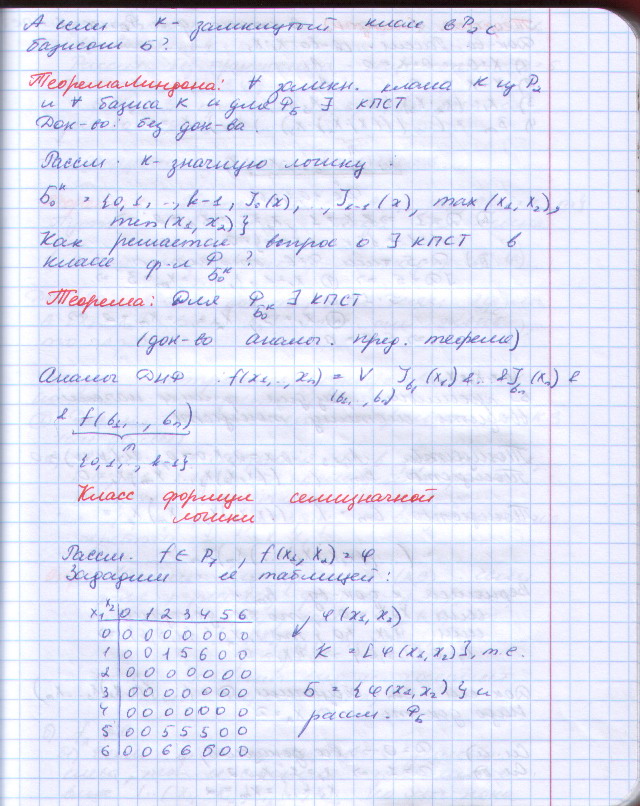 А если K - замкнутый класс в P₂ с
базисом Б?
Теорема Линдона: ∀ замкн. класса K из P₂
и ∀ базиса K и для Ф_Б ∃ КПСТ
Док-во: без док-ва.
Рассм. к-значную логику:
Б₀ᵏ = {0, 1, .., k-1, J₀(x), .., J_{k-1}(x), max(x₁, x₂),
min(x₁, x₂)}
Как решается вопрос о ∃ КПСТ в
классе ф-л Ф_{Б₀ᵏ} ?
Теорема: Для Ф_{Б₀ᵏ} ∃ КПСТ
(док-во аналог. пред. теореме)
Аналог ДНФ : f(x₁, .., xₙ) = V_{(б₁, .., бₙ)} J_{б₁}(x₁) & .. & J_{бₙ}(xₙ) &
& f(б₁, .., бₙ)
∩
{0, 1, .., k-1}
Класс формул семизначной
логики
Рассм. f ∈ P₇ .., f(x₁, x₂) = φ
Зададим её таблицей:
x₁ x₂ 0 1 2 3 4 5 6
0 0 0 0 0 0 0 0
1 0 0 1 5 6 0 0
2 0 0 0 0 0 0 0
3 0 0 0 0 0 0 0
4 0 0 0 0 0 0 0
5 0 0 5 5 5 0 0
6 0 0 6 6 6 0 0
φ(x₁, x₂)
K = [φ(x₁, x₂)], т.е.
Б = {φ(x₁, x₂)} и
рассм. Ф_Б